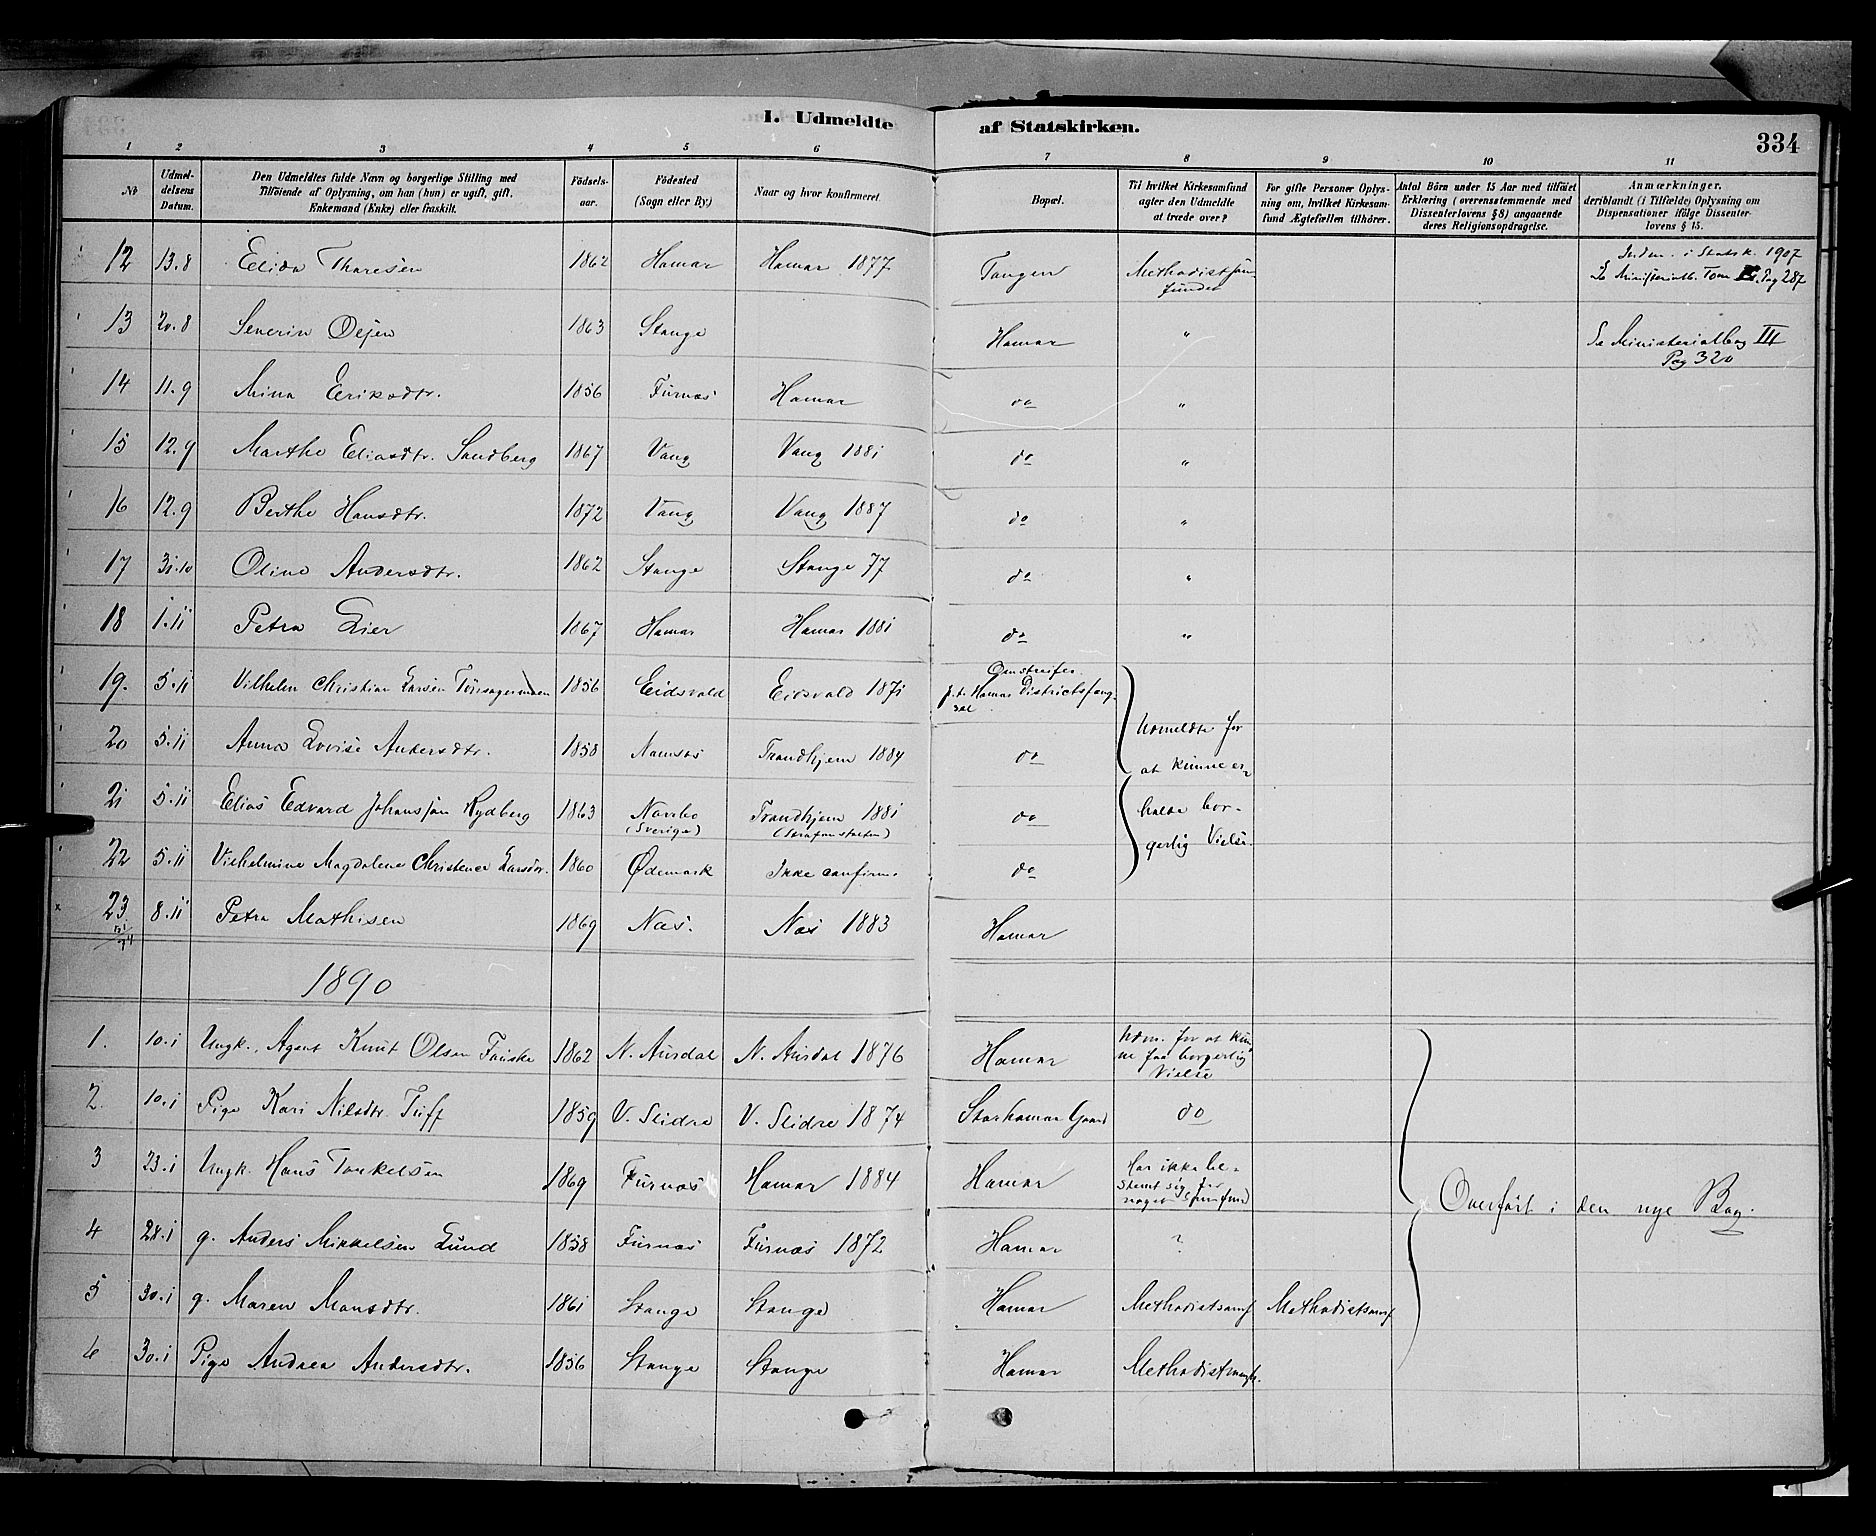 I. Udmeldte af Statskirken.
334
1 2 3 4 5 6 7 8 9 10 11
No
Udmeldelsens Datum.
Den Udmeldtes fulde Navn og borgerlige Stilling med
Tilföiende af Oplysning, om han (hun) er ugift, gift,
Enkemand (Enke) eller fraskilt.
Födselsaar.
Födested
(Sogn eller By.)
Naar og hvor konfirmeret.
Bopæl.
Til hvilket Kirkesamfund
agter den Udmeldte
at træde over?
For gifte Personer Oplysning
om, hvilket Kirkesamfund
Ægtefællen tilhörer.
Antal Börn under 15 Aar med tilföiet
Erklæring (overensstemmende med
Dissenterlovens § 8) angaaende
deres Religionsopdragelse.
Anmærkninger,
deriblandt (i Tilfælde) Oplysning om
Dispensationer ifölge Dissenterlovens
§ 15.
12 13.8 Elida Thoresen 1862 Hamar Hamar 1877 Tangen Methodistsamfundet Indm. i Statsk. 1907
Se Ministerialb. Tom Pag 287
13 20.8 Severin Olsen 1863 Stange Hamar " Se Ministerialbog III
Pag 320
14 11.9 Mina Eriksdtr. 1856 Furnæs Hamar do "
15 12.9 Marthe Eliasdtr. Sandberg 1867 Vang Vang 1881 do "
16 12.9 Berthe Hansdtr. 1872 Vang Vang 1887 do "
17 31.10 Oline Andersdtr. 1862 Stange Stange 77 do "
18 1.11 Petra Lier 1867 Hamar Hamar 1881 do "
19. 5.11 Vilhelm Christian Larsen 1856 Eidsvold Eidsvold 1871 Omstreifer.
p.t. Hamar Districtsfængsel
20 5.11 Anna Lovise Andersdtr. 1858 Namsos Trondhjem 1884 do
21 5.11 Elias Edvard Johanssøn Rydberg 1863 (Sverige) Trondhjem 1881
(Strafanstalten) do
22 5.11 Vilhelmine Magdalene Christence Larsdtr. 1860 Ødemark Ikke confirm. do
Udmeldte for
at kunne erholde
borgerlig
Vielse.
23 8.11 Petra Mathisen 1869 Næs. Næs 1883 Hamar
1890
1. 10.1 Ungk., Agent Knut Olsen Fauske 1862 N. Aurdal N. Aurdal 1876 Hamar Udm. for at kunne
faa borgerlig
Vielse
2. 10.1 Pige Kari Nilsdtr. Tuff 1859 V. Slidre V. Slidre 1874 Storhamar Gaard do
3 23.1 Ungk. Hans Torkelsen 1869 Furnæs Hamar 1884 Hamar Har ikke bestemt
sig for
noget Samfund
4 28.1 g. Anders Mikkelsen Lund 1858 Furnæs Furnæs 1872 Hamar ?
5 30.1 g. Maren Monsdtr. 1861 Stange Stange Hamar Methodistsamf Methodistsamf
6 30.1 Pige Andrea Andersdtr. 1856 Stange Stange Hamar
Overført i den nye Bog.